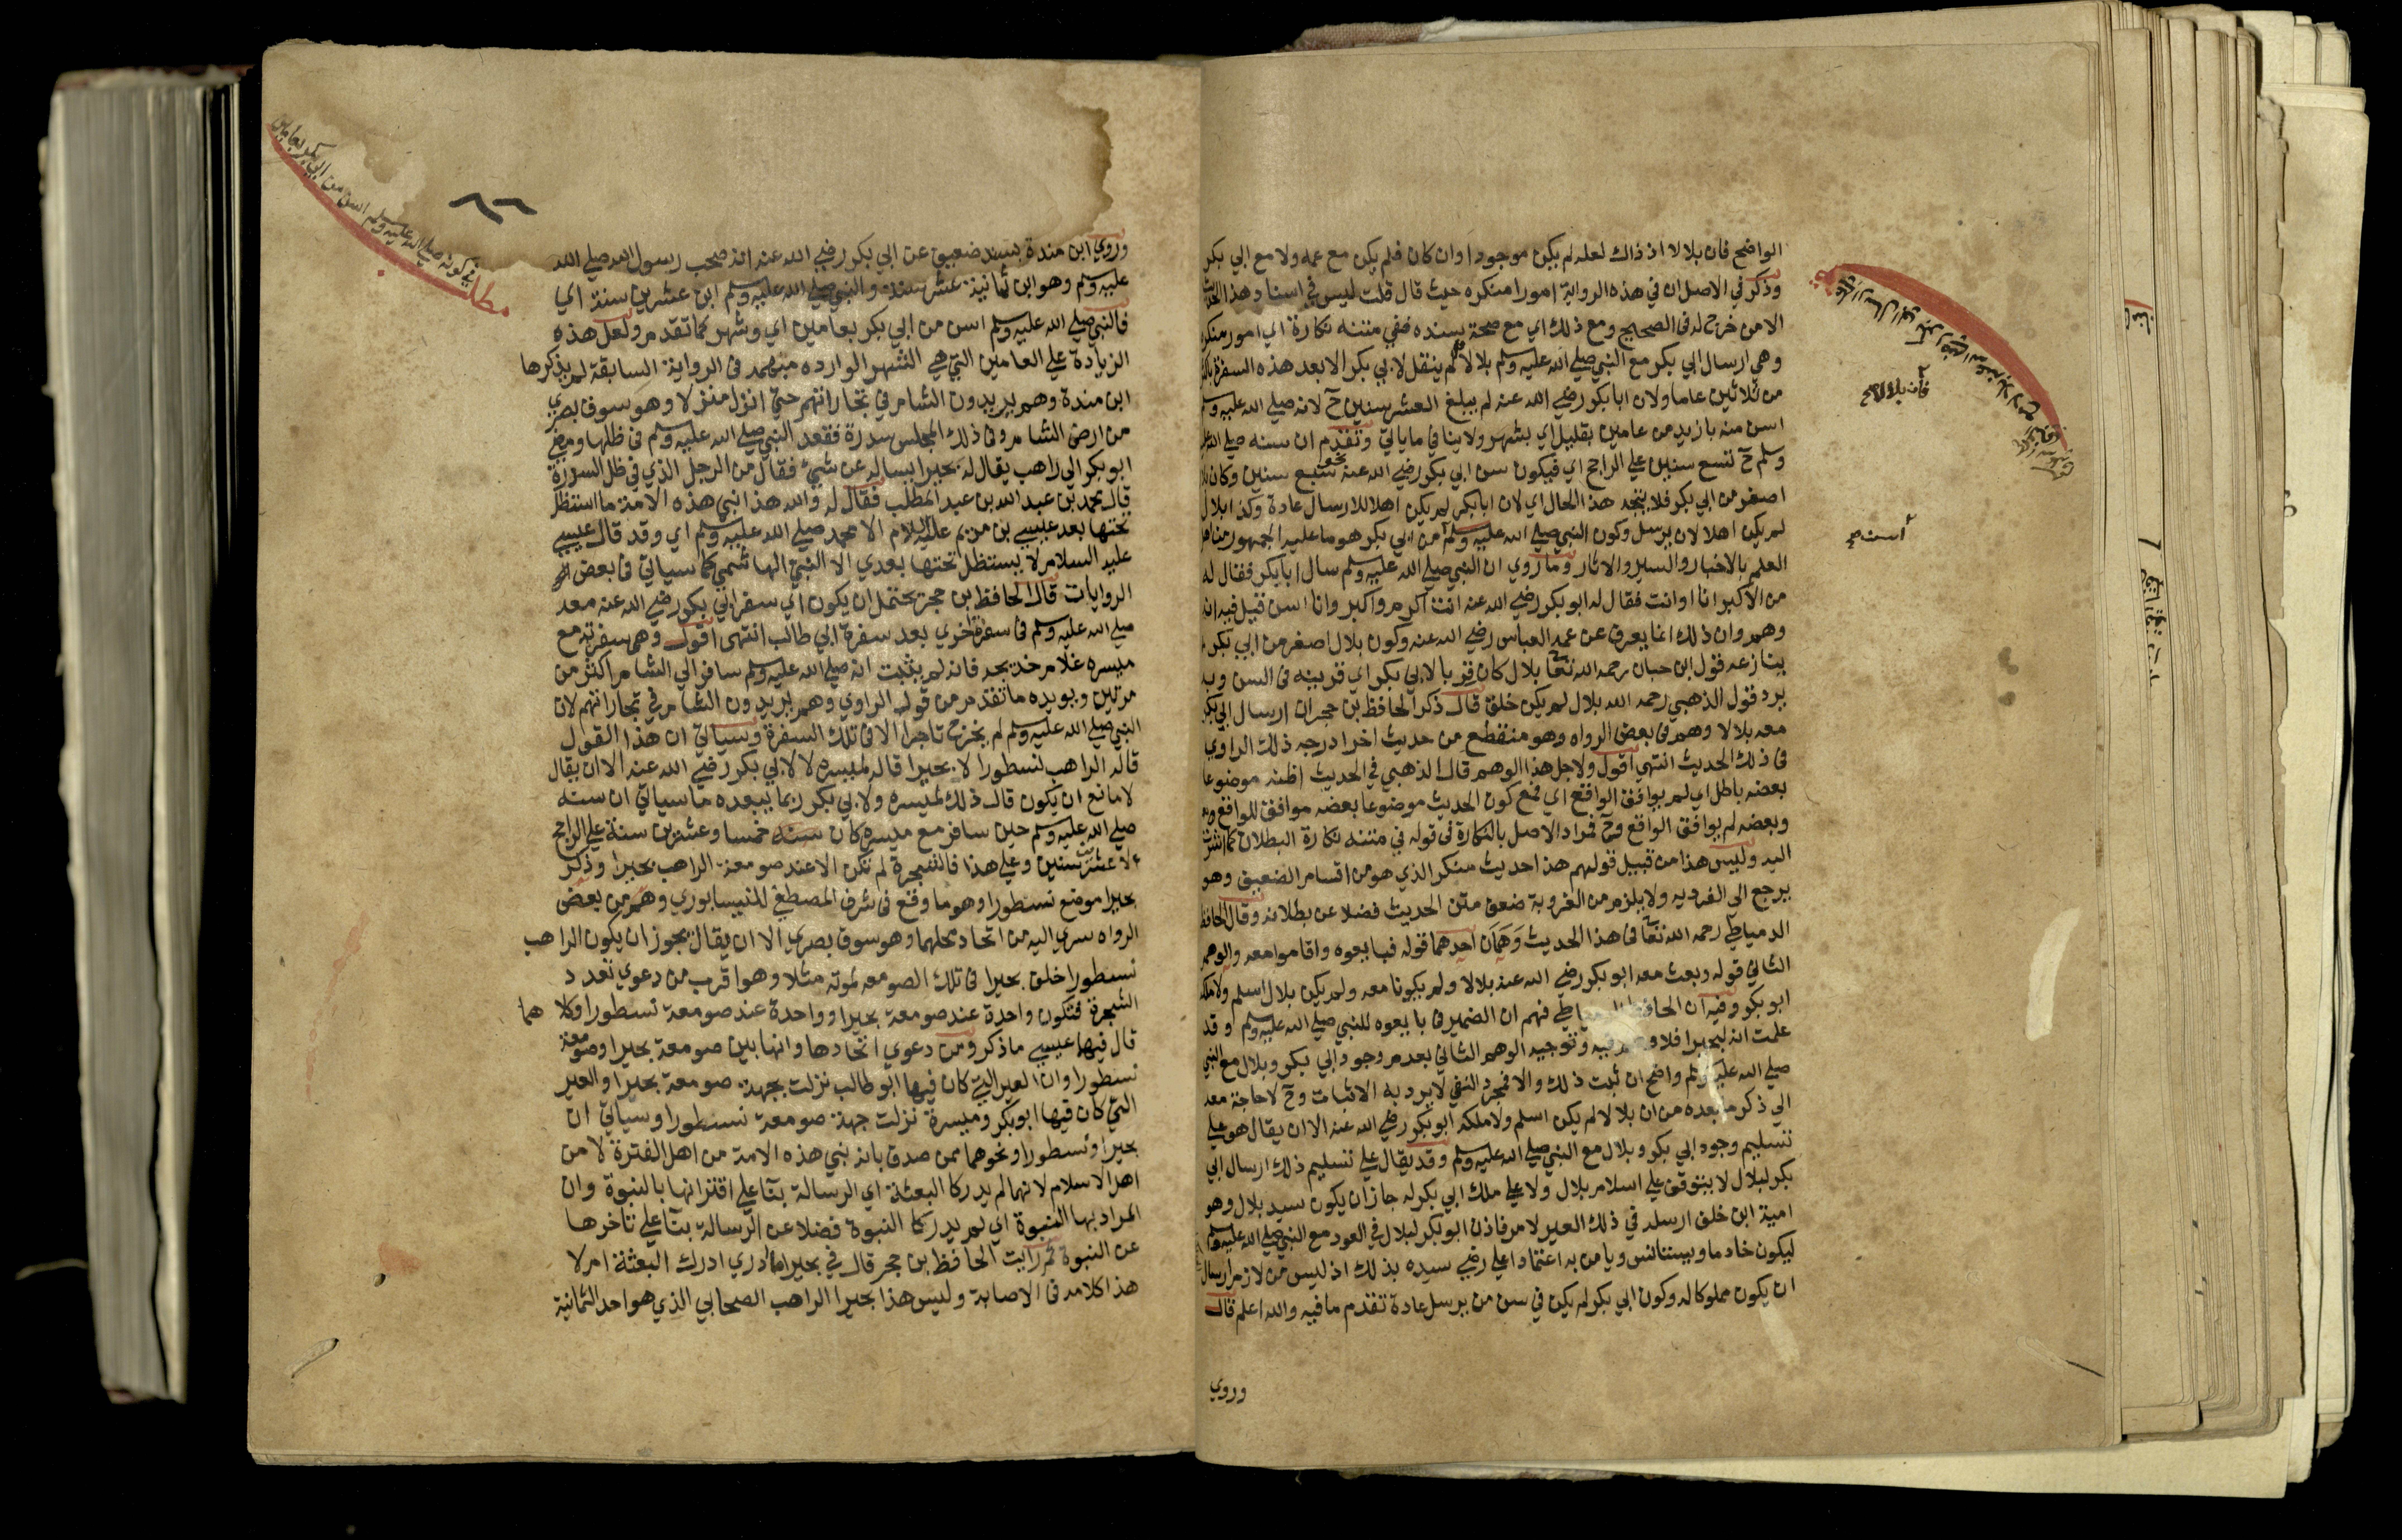 الواضح فان بلالا اذ ذاك لعله لم يكن موجودا وان كان فلم يكن مع عمه ولا مع ابي بكر
وذكر في الاصل ان في هذه الرواية امورا منكره حيث قال قلت ليس في اسنا وهذا الحديث
الا من خرج له في الصحيح ومع ذلك اي مع صحة سنده ففي متنه نكارة اي امور منكر
وهي ارسال ابي بكر مع النبي صلي الله عليه وسلم بلالا لم ينتقل لابي بكر الا بعد هذه السفرة باكثر
من ثلاثين عاما ولان ابا بكر رضي الله عنه لم يبلغ العشر سنين ح لانه صلي الله عليه وسلم
اسن منه بازيد من عامين بقليل اي بشهر ولا ينافي ما ياتي وتقدم ان سنه صلي الله عليه
وسلم ح تسع سنين علي الراجح اي فيكون سن ابي بكر رضي الله عنه نحو سبع سنين وكان بلال
اصغر من ابي بكر فلا يتجه هذا الحال اي لان ابا بكر لم يكن اهلا للارسال عادة وكذا بلال
لم يكن اهلا لان يرسل وكون النبي صلي الله عليه وسلم من ابي بكر هو ما عليه الجمهور من اهل
العلم بالاخبار والسير والاثار وما روي ان النبي صلي الله عليه وسلم سال ابا بكر فقال له
من الاكبر انا او انت فقال له ابو بكر رضي الله عنه انت اكرم واكبر وانا اسن قيل فيه انه
وهم وان ذلك انما يعرف عن عمه العباس رضي الله عنه وكون بلال اصغر من ابي بكر
ينازعه قول ابن حبان رحمه الله تعا بلال كان تربا لابي بكر اي قرينه في السن وبه
يرد قول الذهبي رحمه الله بلال لم يكن خلق قال ذكر الحافظ بن حجر ان ارسال ابي بكر
معه بلالا وهم في بعض الرواه وهو منقطع من حديث اخر ادرجه ذلك الراوي
في ذلك الحديث انتهي اقول ولاجل هذا الوهم قال الذهبي في الحديث اظنه موضوعا
بعضه باطل اي لم يوافق الواقع اي فمع كون الحديث موضوعا بعضه موافق للواقع
وبعضه لم يوافق الواقع وح فمراد الاصل بالنكارة في قوله في متنه نكارة البطلان كما اشرت
اليه وليس هذا من قبيل قولهم هذا حديث منكر الذي هو من اقسام الضعيف وهو
يرجع الى الفرديه ولا يلزم من الغرربة ضعف متن الحديث فضلا عن بطلانه وقال الحافظ
الدمياطي رحمه الله تعا في هذا الحديث وهمان احدهما قوله فبايعوه واقاموا معه والوهم
الثاني قوله وبعث معه ابو بكر رضي الله عنه بلالا ولم يكونا معه ولم يكن بلال اسلم ولا ملكه
ابو بكر وفيه ان الحافظ الدمياطي فهم ان الضمير في بايعوه للنبي صلي الله عليه وسلم وقد
علمت انه لبحيرا فلا وهم فيه وتوجيه الوهم الثاني بعدم وجود ابي بكر وبلال مع النبي
صلي الله عليه وسلم واضح ان ثبت ذلك والا فمجرد النفي لا يرد به الاثبات وح لا حاجة معه
الي ذكر ما بعده من ان بلالا لم يكن اسلم ولا ملكه ابو بكر رضي الله عنه الا ان يقال هو علي
تسليم وجود ابي بكر وبلال مع النبي صلي الله عليه وسلم وقد يقال علي تسليم ذلك ارسال ابي
بكر لبلال لا يتوقف علي اسلام بلال ولا علي ملك ابي بكر له جاز ان يكون سيد بلال وهو
امية ابن خلف ارسله في ذلك العير لامر فاذن ابو بكر لبلال في العود مع النبي صلي الله عليه وسلم
ليكون خادما ويستانس ويامن به اعتمادا علي رضي سيده بذلك اذ ليس من لازم ارسال
ان يكون مملوكا له وكون ابي بكر لم يكن في سن من يرسل عادة تقدم ما فيه والله اعلم قال
وروي
فان بلالا صح
اسن صح
مطلب في كونه صلي الله عليه وسلم اسن من ابي بكر بعامين
٦٦
وروي ابن مندة بسند ضعيف عن ابي بكر رضي الله عنه انه صحب رسول الله صلي الله
عليه وسلم وهو ابن ثمانية عشر سنة والنبي صلي الله عليه وسلم ابن عشرين سنة اي
فالنبي صلي الله عليه وسلم اسن من ابي بكر بعامين اي وشهر كما تقدم ولعل هذه
الزيادة علي العامين التي هي الشهر الوارده مبهمه في الرواية السابقة لم يذكرها
ابن مندة وهم يريدون الشام في تجاراتهم حتي انزل منزلا وهو سوق بصري
من ارض الشام وفي ذلك المجلس سدرة فقعد النبي صلي الله عليه وسلم في ظلها ومضي
ابو بكر الي راهب يقال له بحيرا يساله عن شيء فقال من الرجل الذي في ظل السدرة
قال محمد بن عبد الله بن عبد المطلب فقال له والله هذا نبي هذه الامة ما استظل
تحتها بعد عيسي بن مريم عليه السلام الا محمد صلي الله عليه وسلم اي وقد قال عيسي
عليه السلام لا يستظل تحتها بعدي الا النبي الهاشمي كما سياتي في بعض
الروايات قال الحافظ بن حجر يحتمل ان يكون اي سفر ابي بكر رضي الله عنه معه
صلي الله عليه وسلم في سفرة اخري بعد سفرة ابي طالب انتهى اقول وهي سفرته مع
ميسره غلام خديجه فانه لم يثبت انه صلي الله عليه وسلم سافر الي الشام اكثر من
مرتين ويويده ما تقدم من قول الراوي وهم يريدون الشام في تجاراتهم لان
النبي صلي الله عليه وسلم لم يخرج تاجرا الا في تلك السفرة وسياتي ان هذا القول
قاله الراهب نسطورا لا بحيرا قاله لميسره لا لابي بكر رضي الله عنه الا ان يقال
لا مانع ان يكون قال ذلك لميسره ولابي بكر ربما يبعده ما سياتي ان سنه
صلي الله عليه وسلم حين سافر مع ميسره كان سنه خمسا وعشرين سنة علي الراجح
لا عشرين سنين وعلي هذا فالشجرة لم تكن الا عند صومعة الراهب بحيرا وذكر
بحيرا موضع نسطورا وهو ما وقع في شرف المصطفي للنيسابوري وهم من بعض
الرواه سري اليه من اتحاد محلهما وهو سوق بصري الا ان يقال يجوز ان يكون الراهب
نسطورا خلف بحيرا في تلك الصومعه لموته مثلا وهو اقرب من دعوي تعدد
الشجرة فتكون واحدة عند صومعة بحيرا وواحدة عند صومعة نسطورا وكلا هما
قال فيها عيسي ما ذكر ومن دعوي اتحادها وانها بين صومعة بحيرا وصومعة
نسطورا وان العير التي كان فيها ابو طالب نزلت بجهة صومعة بحيرا والعير
التي كان فيها ابو بكر وميسرة نزلت جهة صومعة نسطورا وسياتي ان
بحيرا ونسطورا ونحوهما ممن صدق بانه نبي هذه الامة من اهل الفترة لا من
اهل الاسلام لانهما لم يدركا البعثة اي الرسالة بنا علي اقترانها بالنبوة وان
المراد بها النبوة اي لم يدركا النبوة فضلا عن الرسالة بنا علي تاخرها
عن النبوة ثم رايت الحافظ بن حجر قال في بحيرا ما ادري ادرك البعثة ام لا
هذا كلامه في الاصابة وليس هذا بحيرا الراهب الصحابي الذي هو احد الثمانية